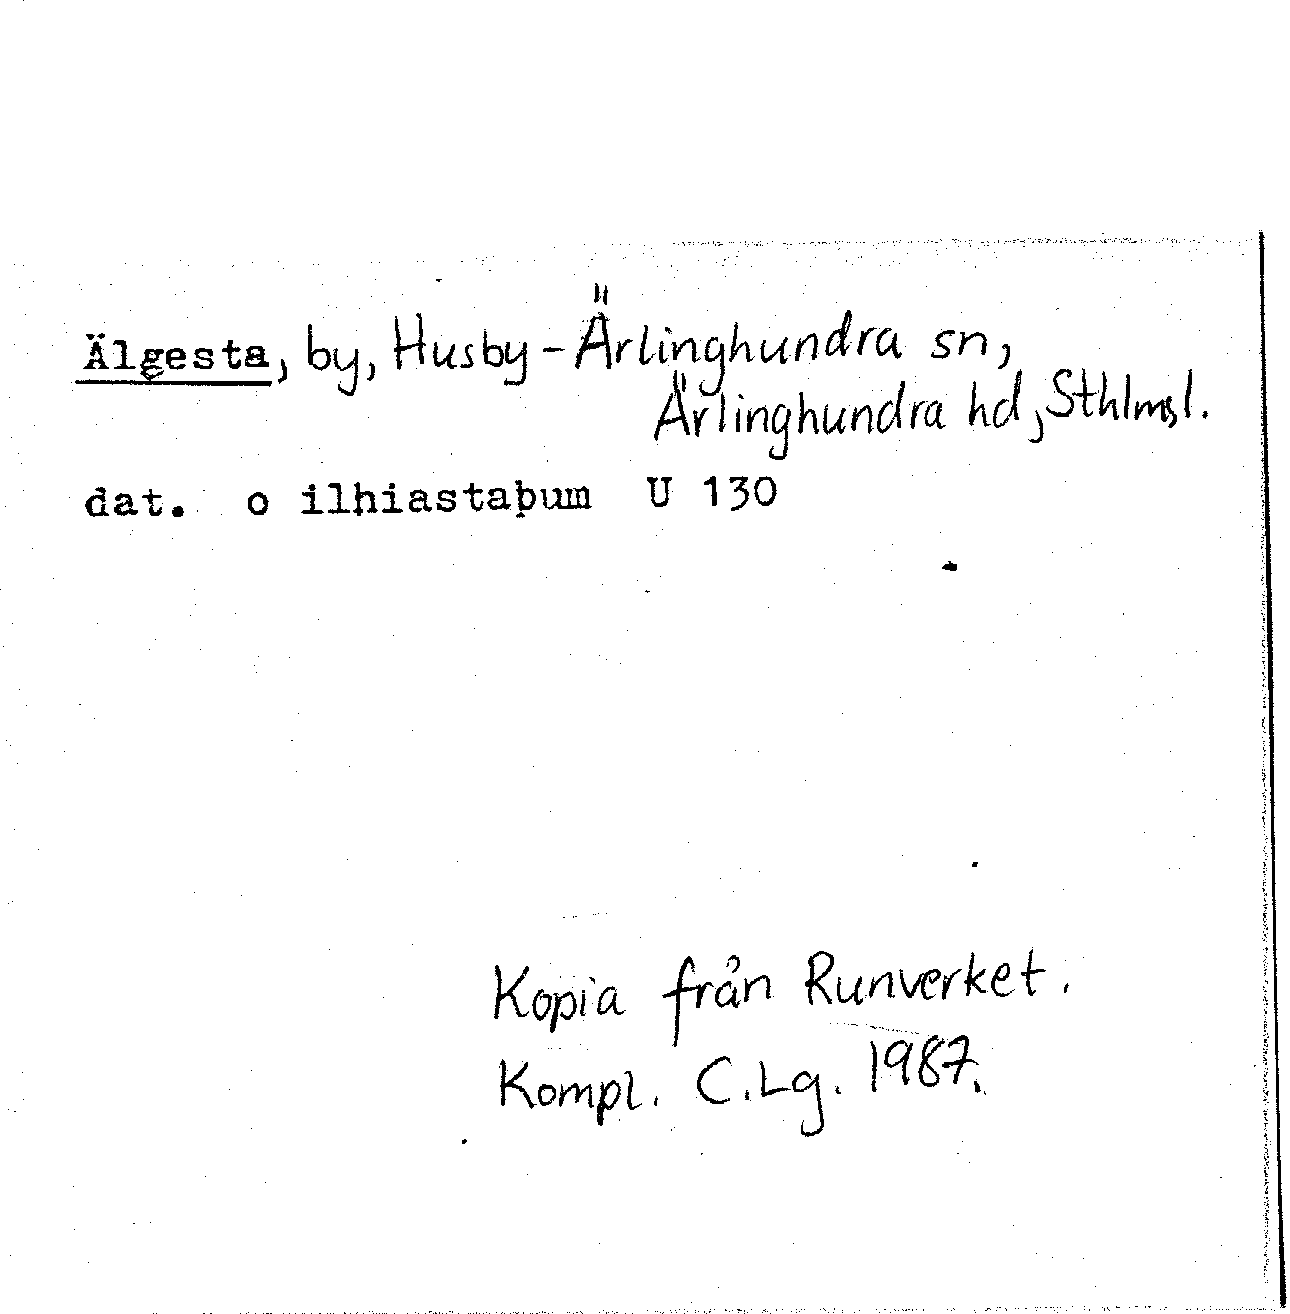 Älgesta, by, Husby-Ärlinghundra sn,
Ärlinghundra hd, Sthlms l.
dat. o ilhiastaþum U 130
Kopia från Runverket.
Kompl. C.Lg. 1987.